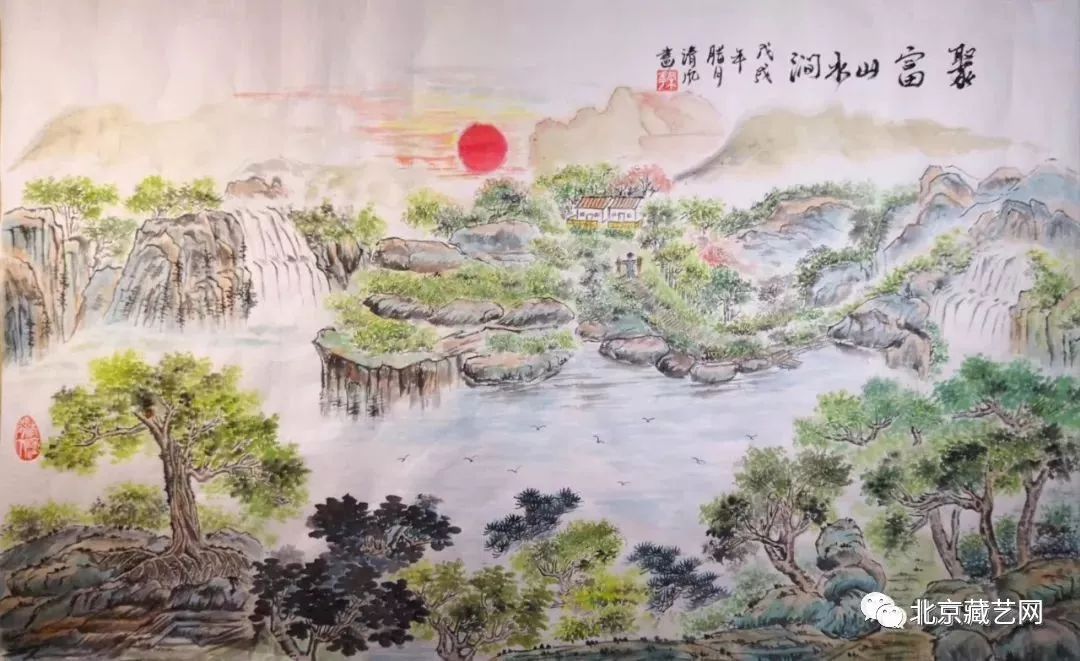 聚富山水涧
戊戌
年
腊月
清风
北京藏艺网